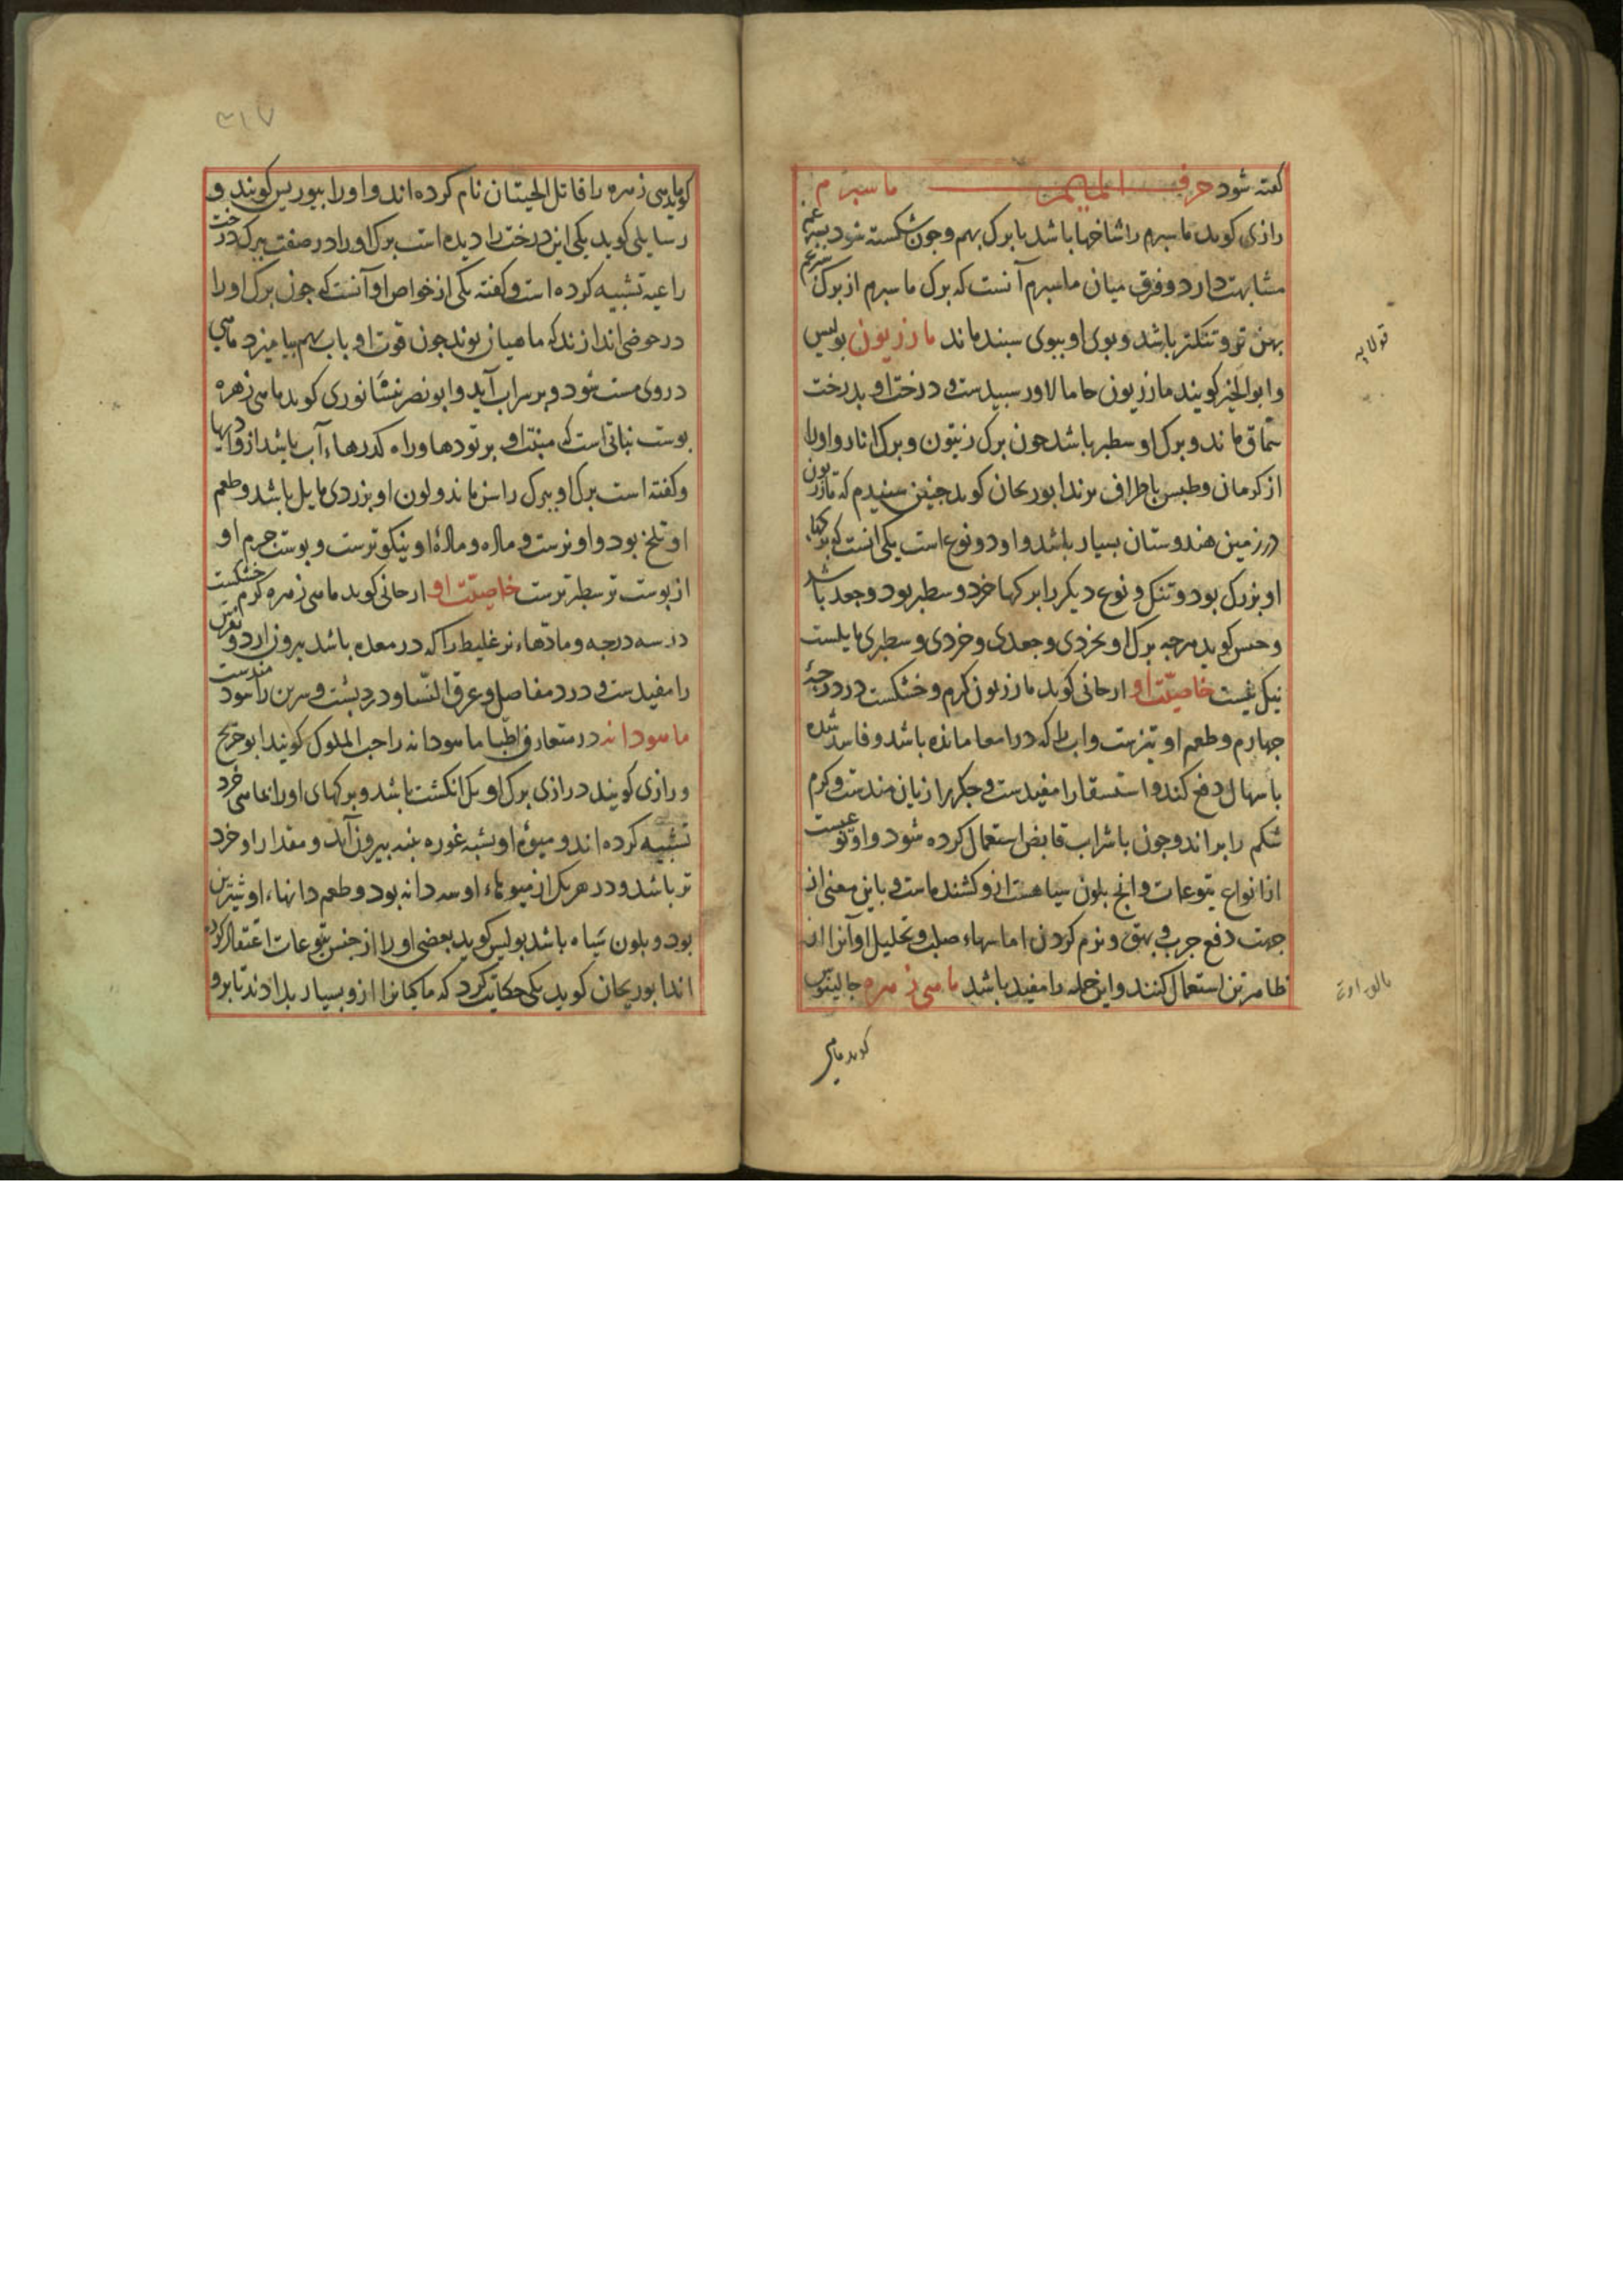 کفته شود حرف المیم ماسبرم
رازی کوید ماسبرم را شاخها باشد با برک بهم و چون شکسته شود
مشابهت دارد و فرق میان ماسبرم آنست که برک ماسبرم از برک
بهن تر و تنکتر باشد و بوی او ببوی سبند ماند مازریون بولس
و ابو الخیر کویند مازریون حامالاور سبیدست و درخت او بدرخت
سماق ماند و برک او سطبر باشد جون برک زیتون و برک انار و اورا
از کرمان و طبس باطراف برند ابوریحان کوید جنین شنیدم که مازریون
در زمین هندوستان بسیار باشد و او دو نوع است یکی انست که برکها
او بزرک بود و تنک و نوع دیکر را برکها خرد و سطبر بود و جعد باشد
و حبس کوید هرجه برک او بخردی و جعدی و خردی و سطبری مایلست
نیک نیست خاصیّت او ارجانی کوید مازریون کرم و خشکست در درجهٔ
جهارم و طعم او تیزست و اب را که در امعا مانده باشد و فاسد شده
باسهال دفع کند و استسقا را مفیدست و جکر را زیان مندست و کرم
شکم را براند و جون با شراب قابض استعمال کرده شود و او نوعیست
از انواع یتوعات و انج بلون سیاهست ازو کشنده است و باین معنی از
جهت دفع جرب و بهق و نرم کردن اماسهاء صلب و تحلیل او آنرا از
ظاهر تن استعمال کنند و این جمله را مفید باشد ماهی زهره جالینوس
کوید ماهی
۳۱۷
کوید ماهی زهره را قاتل الحیتان نام کرده اند و اورا بیوریس کویند و
رسایلی کوید یکی این درخت را دیده است برک اورا در صفت ببرک درخت
راعیه تشبیه کرده است و کفته یکی از خواص او آنست که جون برک اورا
در حوضی اندازند که ماهیان بوند جون قوت او باب بهم بیامیزد ماهی
در وی مست شود و بر سر اب آید و ابونصر نیشانوری کوید ماهی زهره
بوست نباتی است که منبت او بر تودها و راه کذرهاء آب باشد از وادیها
و کفته است برک او ببرک راسن ماند و لون او بزردی مایل باشد و طعم
او تلخ بود و او نرست و ماده و مادهٔ او نیکوترست و بوست جرم او
از بوست نر سطبرترست خاصیّت او ارجانی کوید ماهی زهره کرم خشکست
در سه درجه و مادّهاء نر غلیظ را که در معده باشد بیرون ارد و نقرس
را مفیدست و درد مفاصل و عرق النّسا و درد بشت و سرین را سودمندست
ماهودانه در متعارف اطبّا ماهودانه را حب الملوک کویند ابوجریح
و رازی کویند درازی برک او یک انکشت باشد و برکهای اورا بماهی خرد
تشبیه کرده اند و میوهٔ او بشبه غوره بنبه بیرون آید و مقدار او خرد
تر باشد و در هر یک از میوهاء او سه دانه بود و طعم دانهاء او شیرین
بود و بلون سیاه باشد بولیس کوید بعضی اورا از جنس یتوعات اعتقاد کرده
اند ابوریحان کوید یکی حکایت کرد که ماکیانرا ازو بسیار بدادند تا برو